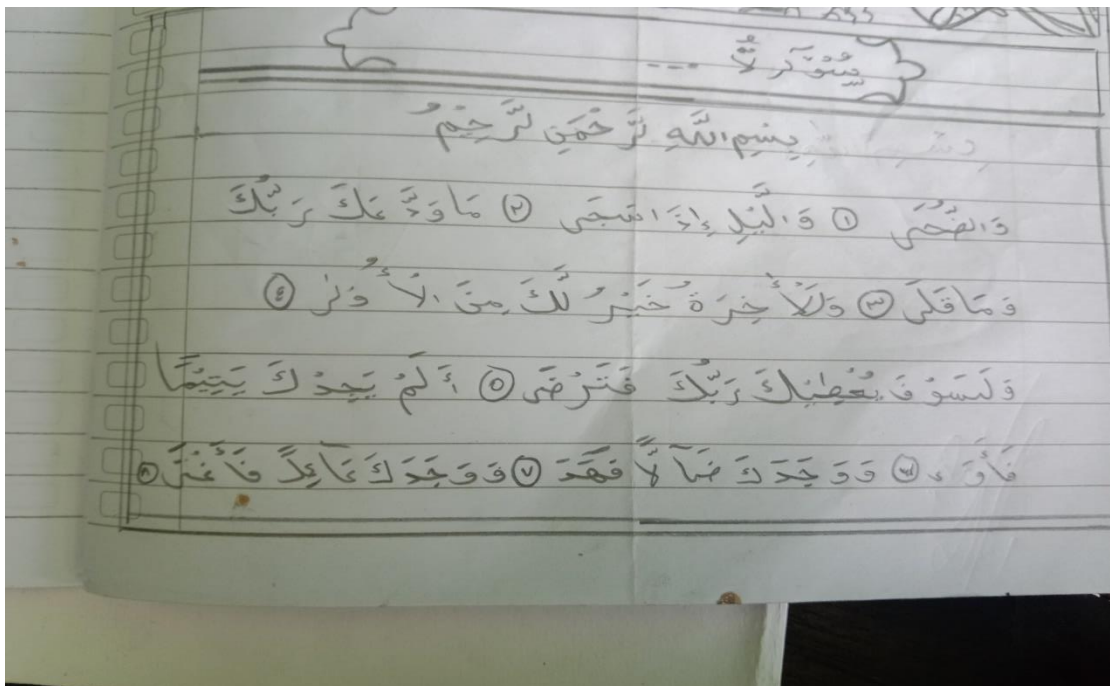 سُوْرَ لاًّ ---
بِسْمِ اللَّهِ لرَّحْمَنِ لرَّحِيْمُ
وَالضُّحَى ۝١ وَالَّيْلِ إِذَا سَجَى ۝٢ مَا وَدَّ عَكَ رَبُّكَ
وَمَا قَلَى ۝٣ وَلَلْأَخِرَةُ خَيْرُ لَّكَ مِنَ الْأُوْلَى ۝٤
وَلَسَوْفَ يُعْطِيْكَ رَبُّكَ فَتَرْضَى ۝٥ أَلَمْ يَجِدْكَ يَتِيْمًا
فَأَوَىء ۝٦ وَوَجَدَكَ ضَآلاًّ فَهَدَ ۝٧ وَوَجَدَكَ عَآئِلاً فَأَغْنَى ۝٨